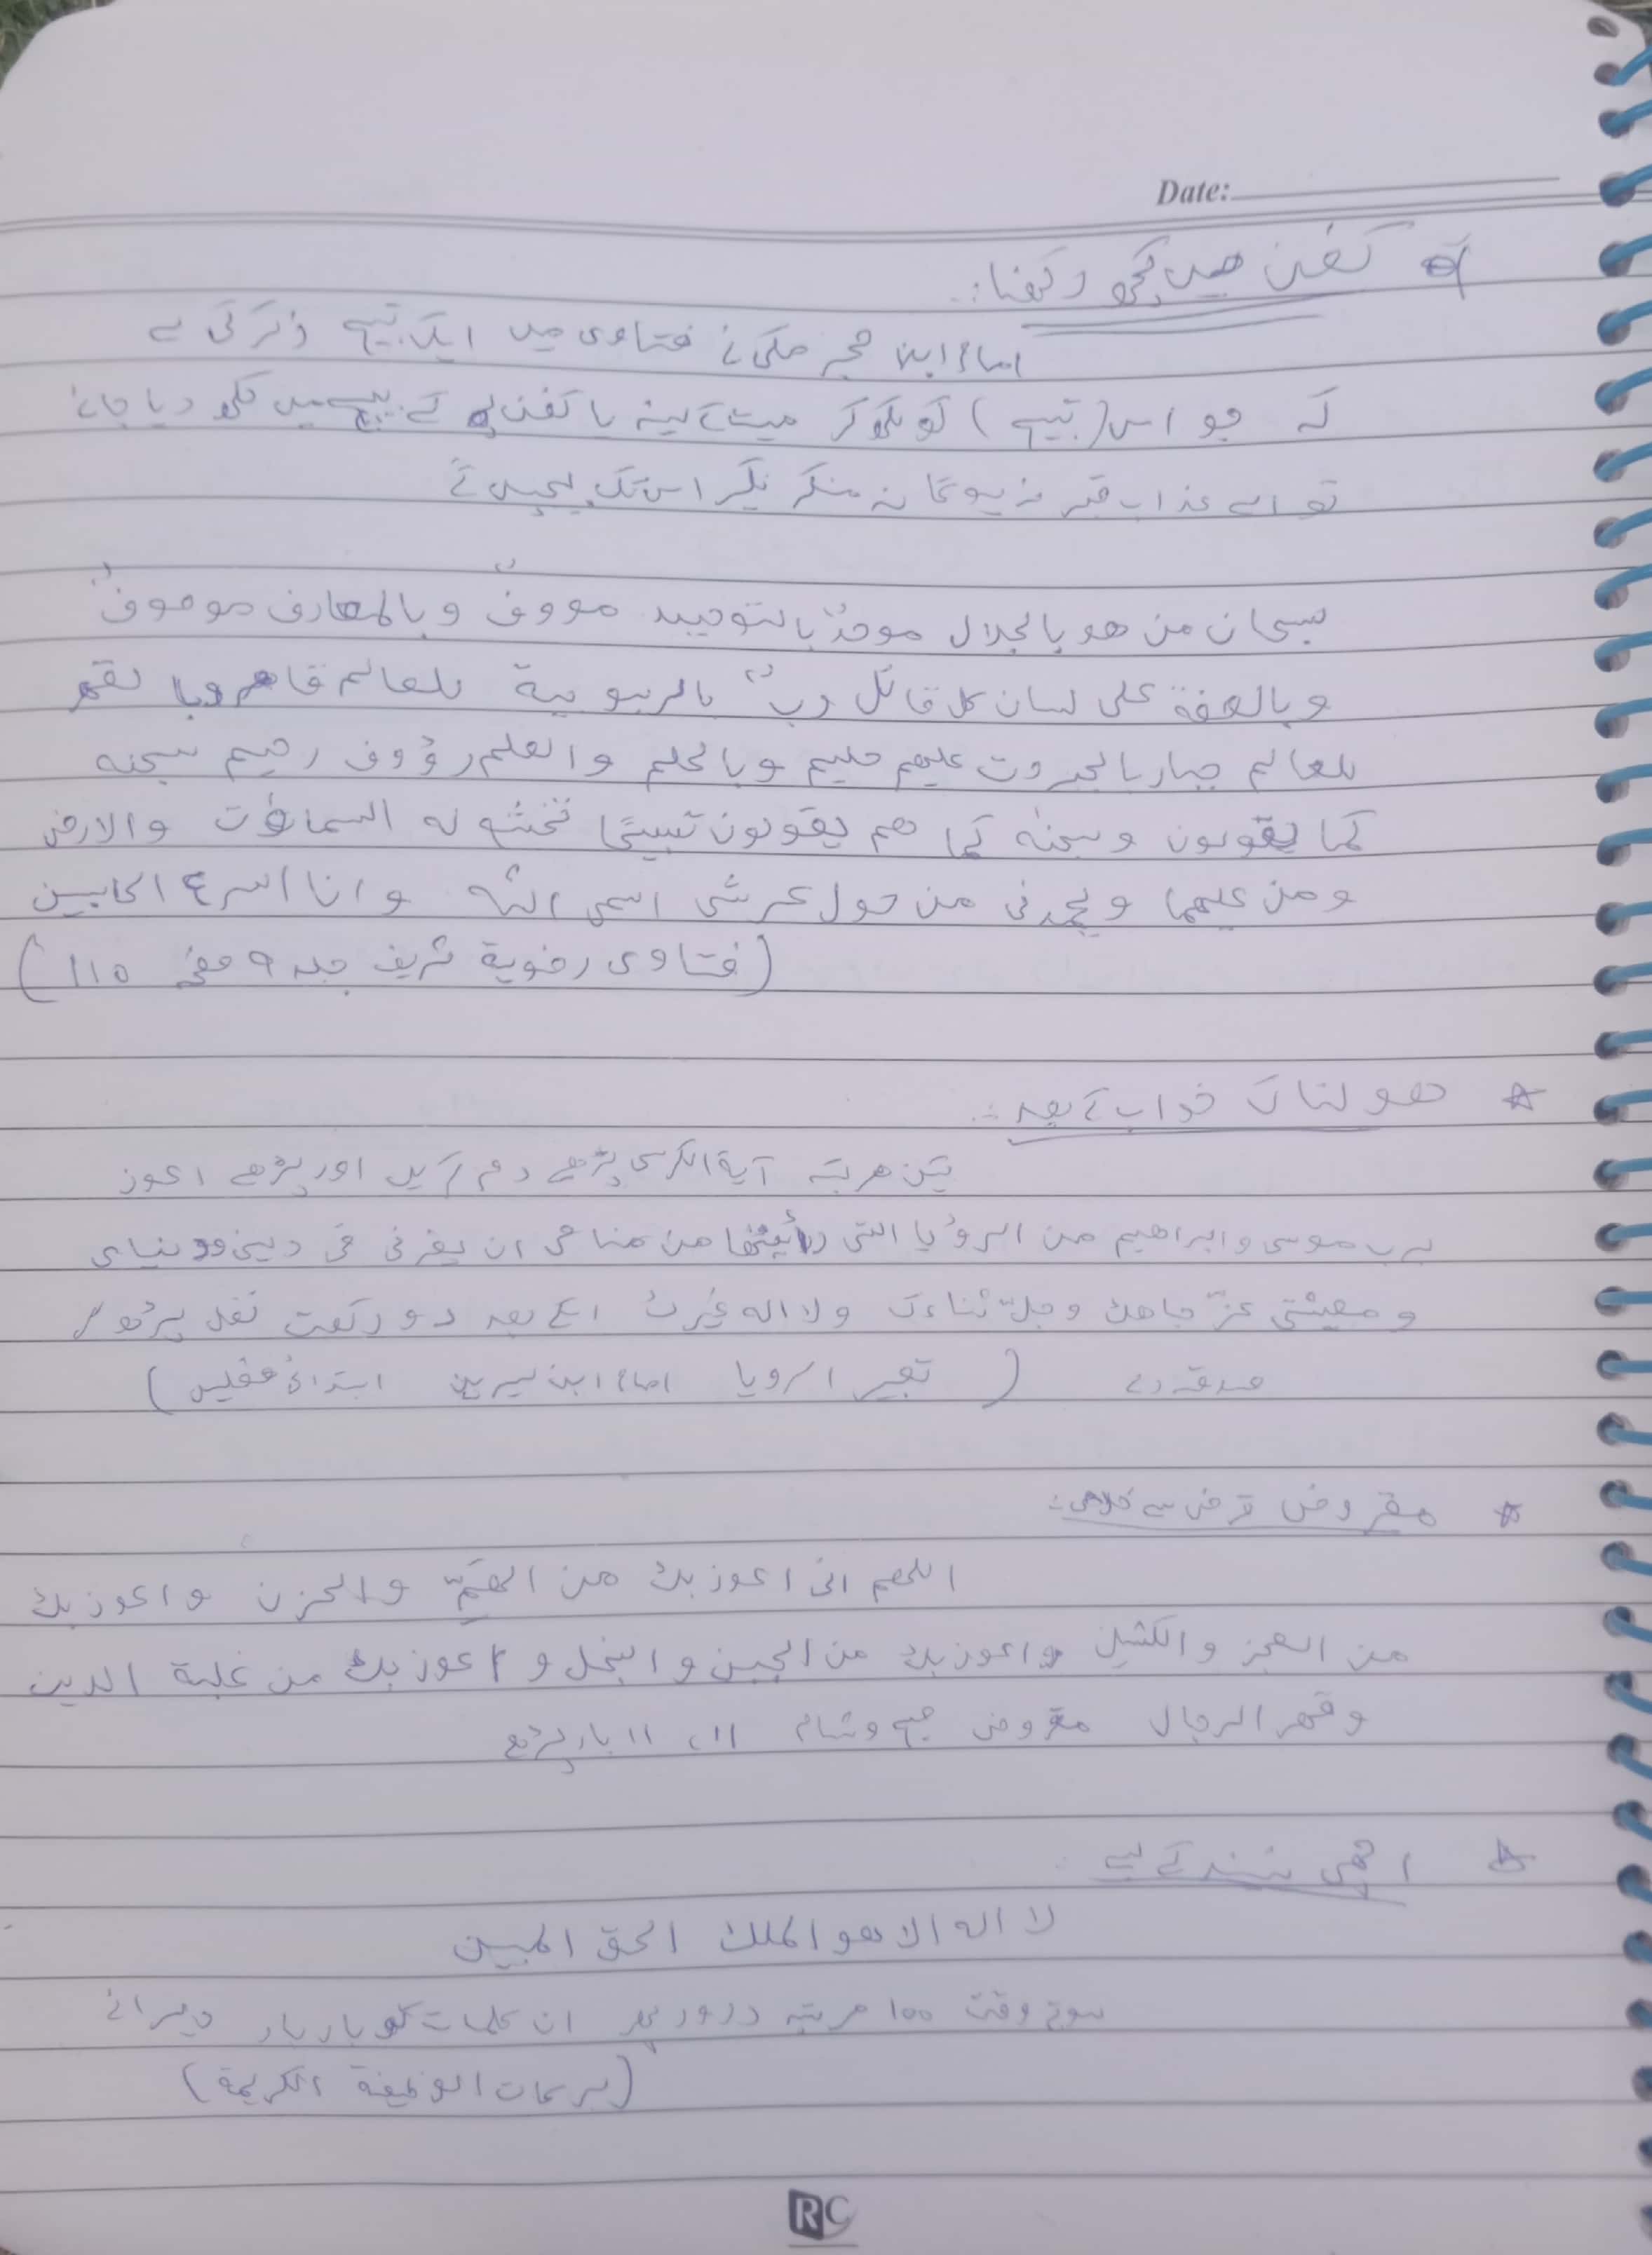 Date:
کفن میں کچھ رکھنا:
امام ابن حجر مکی نے فتاوی میں ایک تسبیح ذکر کی ہے
کہ جو اس (تسبیح) کو لکھ کر میت کے سینہ یا کفن کے بیچ میں رکھ دیا جائے
تو اسے عذاب قبر نہ ہوگا نہ منکر نکیر اس تک پہنچیں گے
سبحان من هو بالجلال موحدٌ بالتوحيد معروفٌ وبالمعارف موصوفٌ
وبالصفة على لسان كل قائل ربٌ بالربوبية للعالم قاهر وبا لقهر
للعالم جبار بالجبروت عليم حليم وبالحلم والعلم رؤوف رحيم سبحنه
كما يقولون وسبحنه كما هم يقولون تسبيحًا تخشع له السماوات والارض
ومن عليها ويحمدنى من حول عرشى اسمى الله وانا اسرع الحاسبين
(فتاوی رضویۃ شریف جلد ۹ صفحہ ۱۱۰)
ھولناک خواب کے بعد:
تین مرتبہ آیۃ الکرسی پڑھے دم کریں اور پڑھے اعوز
برب موسى وابراهيم من الرؤيا التى رأيتها من منامى ان يضرنى فى دينى ودنياى
ومعيشتى عزّ جاهك وجلّ ثناءك ولا اله غيرك اسکے بعد دو رکعت نفل پڑھو
صدقہ دے (تعبیر الرویا امام ابن سیرین ابتدائی صفحیں)
مقروض قرض سے خلاصی:
اللهم انى اعوز بك من الهمّ والحزن واعوز بك
من العجز والكسل واعوز بك من الجبن والبخل واعوز بك من غلبة الدين
وقهر الرجال مقروض صبح وشام ۱۱، ۱۱ بار پڑھے
اچھی نیند کے لیے
لا اله الا هو الملك الحق المبين
سوتے وقت ۱۰۰ مرتبہ درود پھر ان کلمات کو بار بار دہرائے
(برکات الوظیفۃ الکریمۃ)
RC